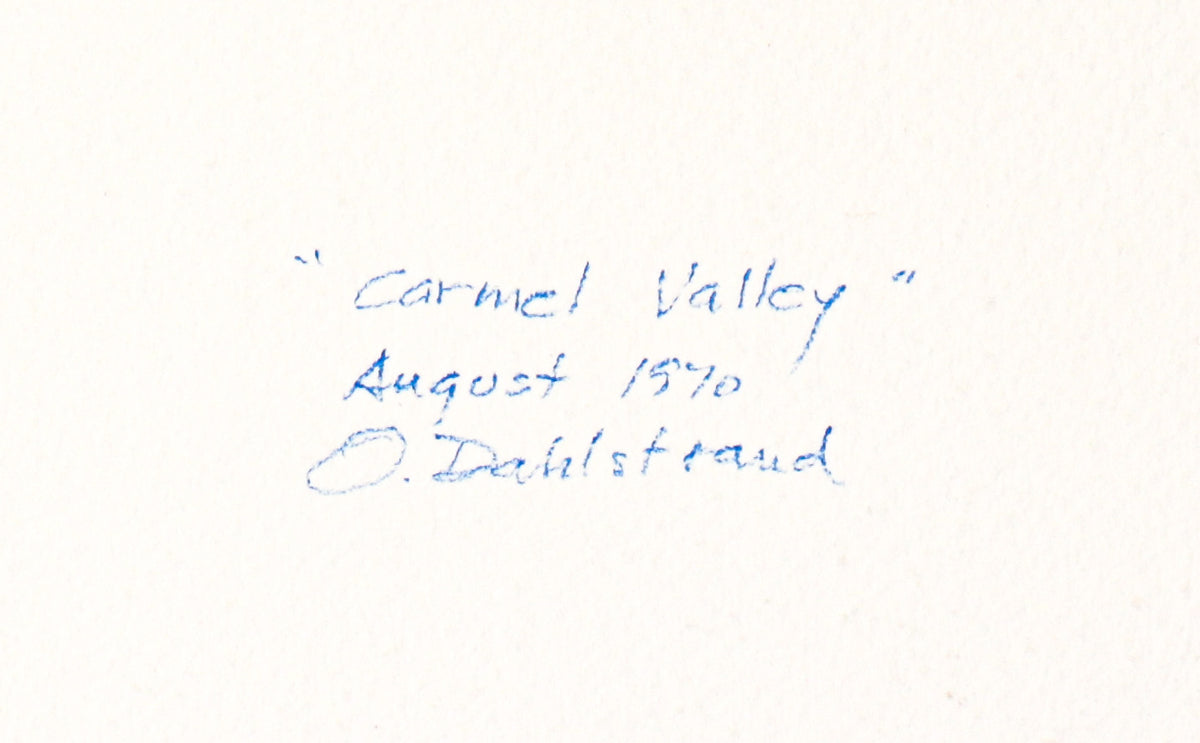 "Carmel Valley"
August 1970
O. Dahlstrand